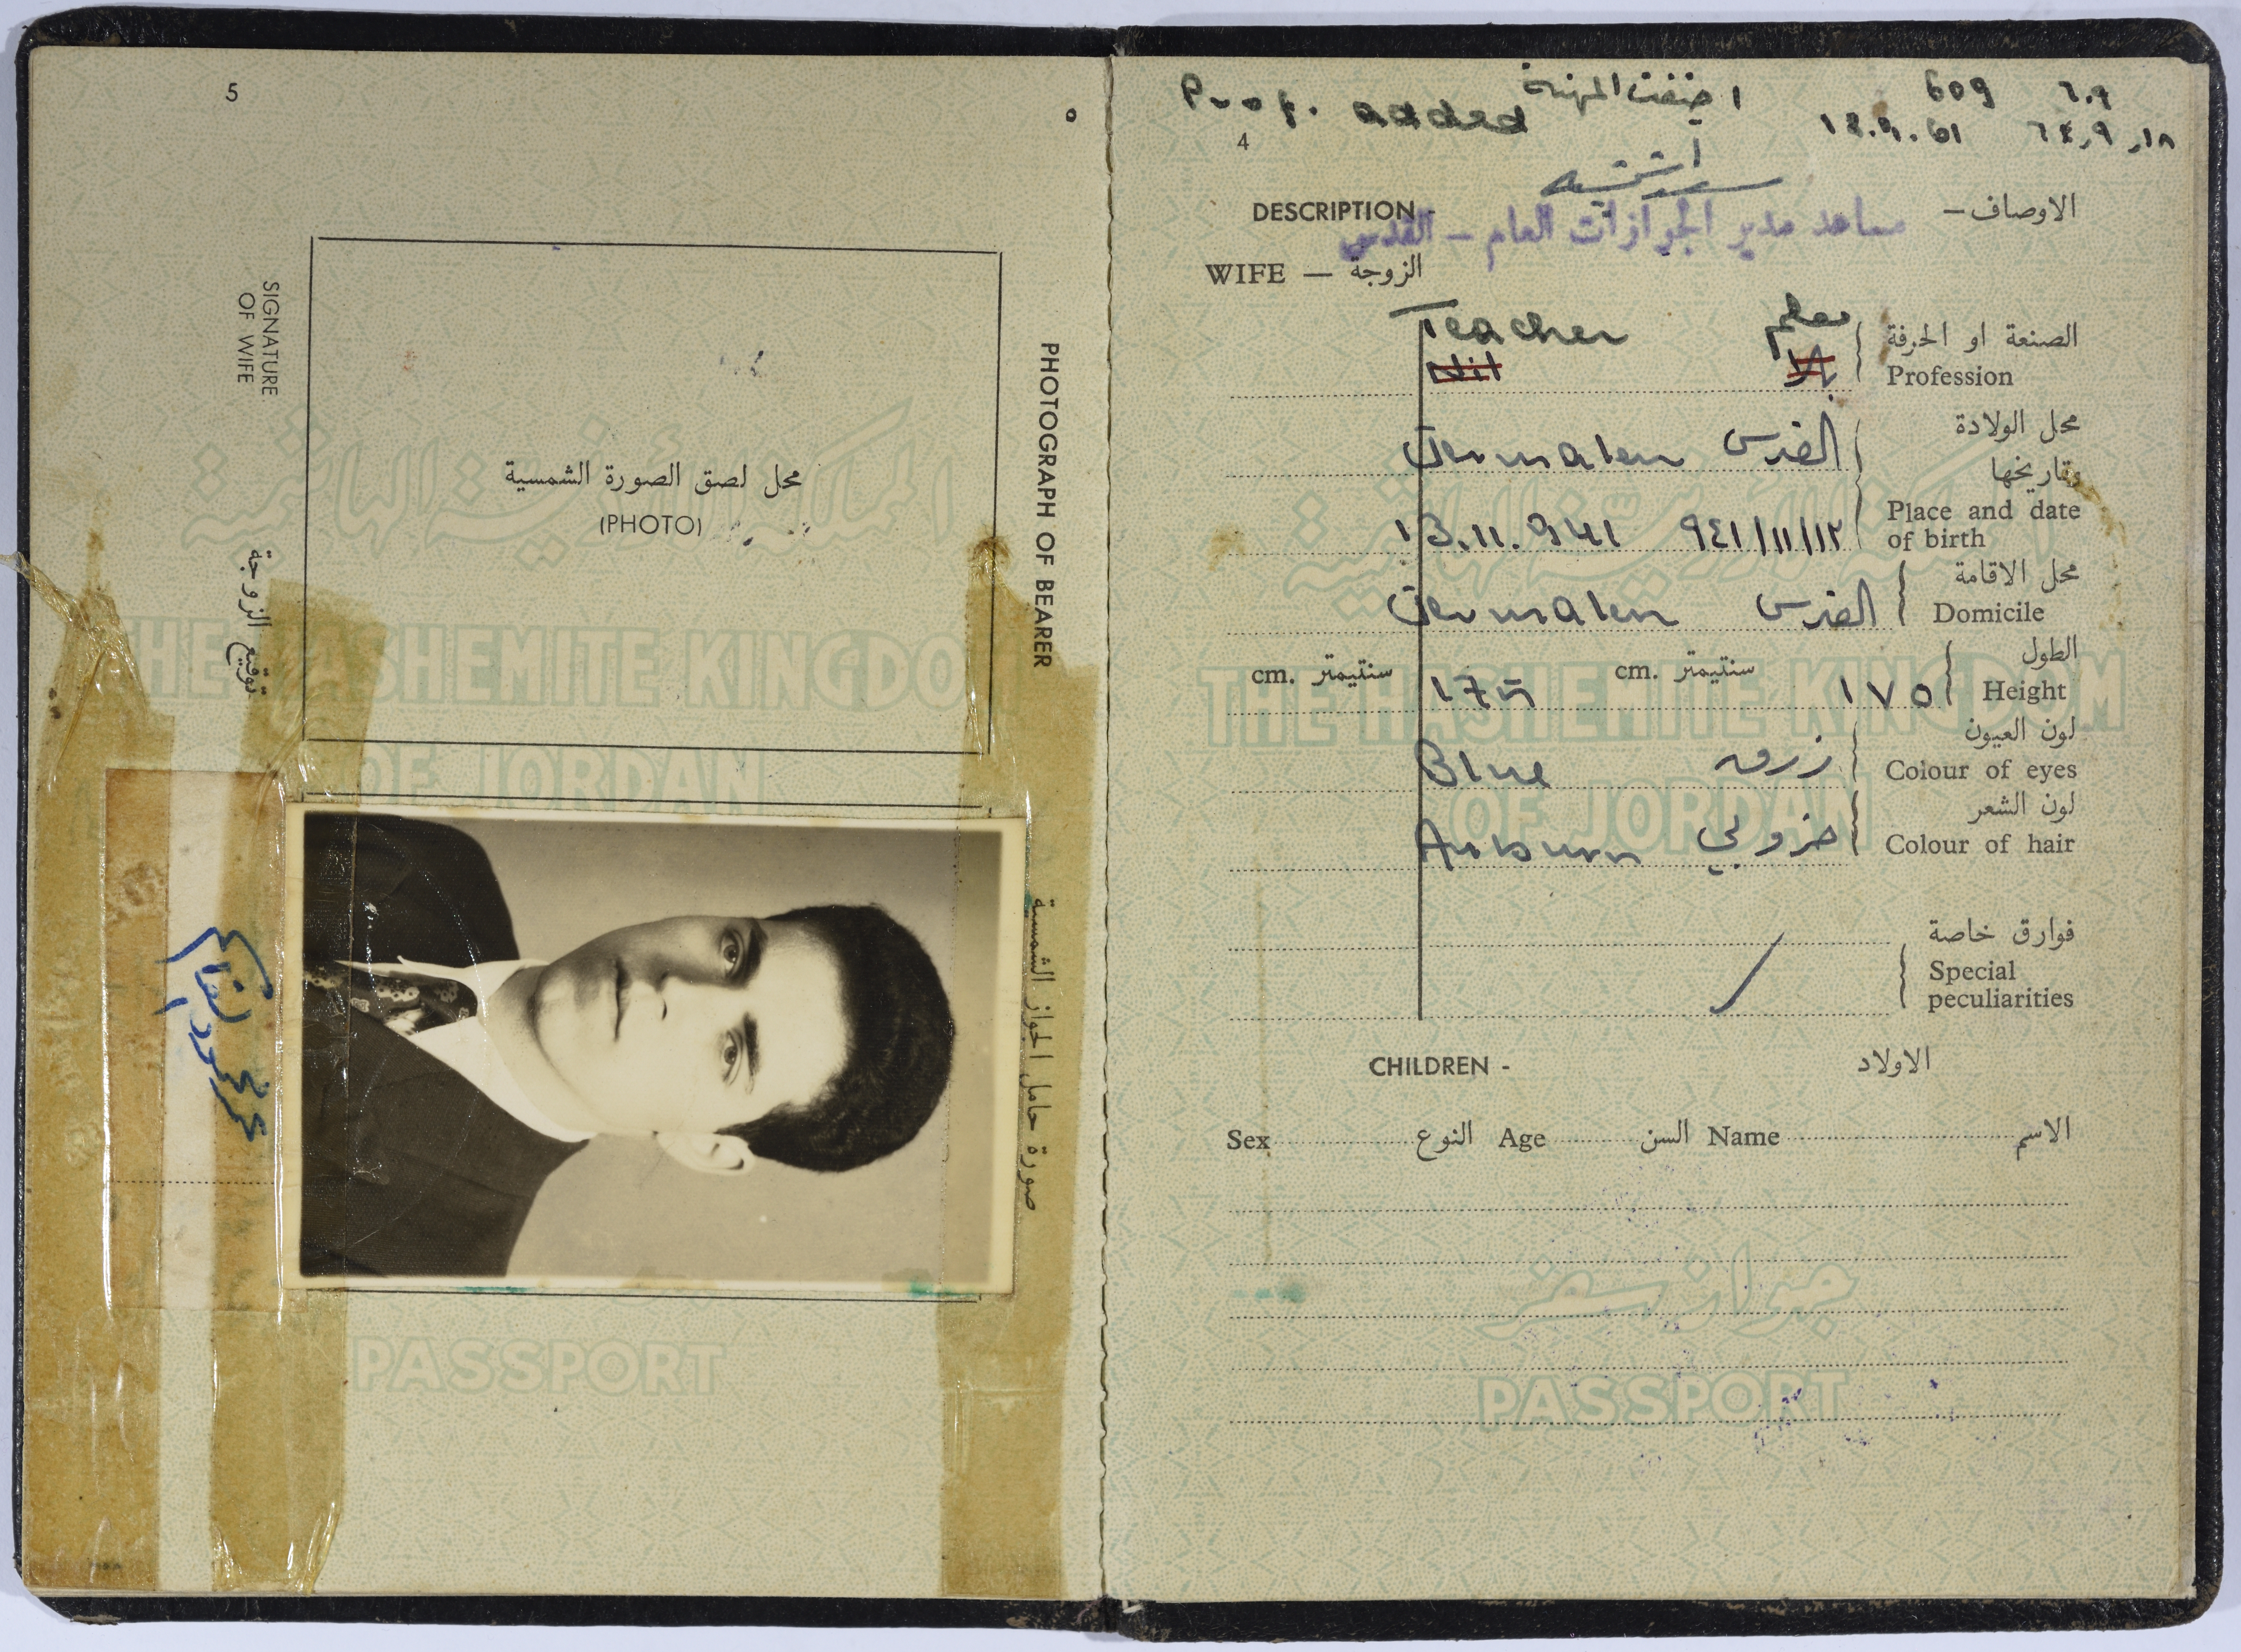 5
SIGNATURE OF WIFE
توقيع الزوجة
محل لصق الصورة الشمسية
(PHOTO)
PHOTOGRAPH OF BEARER
صورة حامل الجواز الشمسية
THE HASHEMITE KINGDO
OF JORDAN
PASSPORT
Prof. added اضيفت المهنة 609 ٦٠٩
4
18.9.61
DESCRIPTION - الاوصاف –
مساعد مدير الجوازات العام – القدس
WIFE — الزوجة
Teacher معلم الصنعة او الحرفة
Nil بلا Profession
Jerusalem القدس محل الولادة
وتاريخها
Place and date
13.11.941 ٩٤١/١١/١٣ of birth
محل الاقامة
Jerusalem القدس Domicile
الطول
cm. سنتيمتر 175 cm. سنتيمتر ١٧٥ Height
لون العيون
Blue زرق Colour of eyes
لون الشعر
Auburn خروبي Colour of hair
فوارق خاصة
Special
peculiarities
CHILDREN - الاولاد
Sex النوع Age السن Name الاسم
THE HASHEMITE KINGDOM
OF JORDAN
جواز سفر
PASSPORT